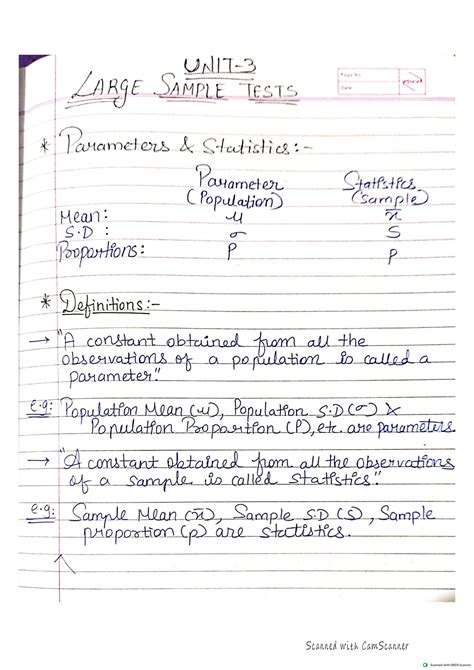 UNIT-3
LARGE SAMPLE TESTS
Page No.
Date
* Parameters & Statistics:-
Parameter Statistics
(Population) (Sample)
Mean: μ x̄
S.D : σ S
Proportions: P p
* Definitions:-
→ "A constant obtained from all the
observations of a population is called a
parameter."
e.g: Population Mean (μ), Population S.D(σ) &
Population Proportion (P), etc. are parameters.
→ "A constant obtained from all the observations
of a sample is called statistics."
e.g: Sample Mean (x̄), Sample S.D (S), Sample
proportion (p) are statistics.
Scanned with CamScanner
Scanned with OKEN Scanner